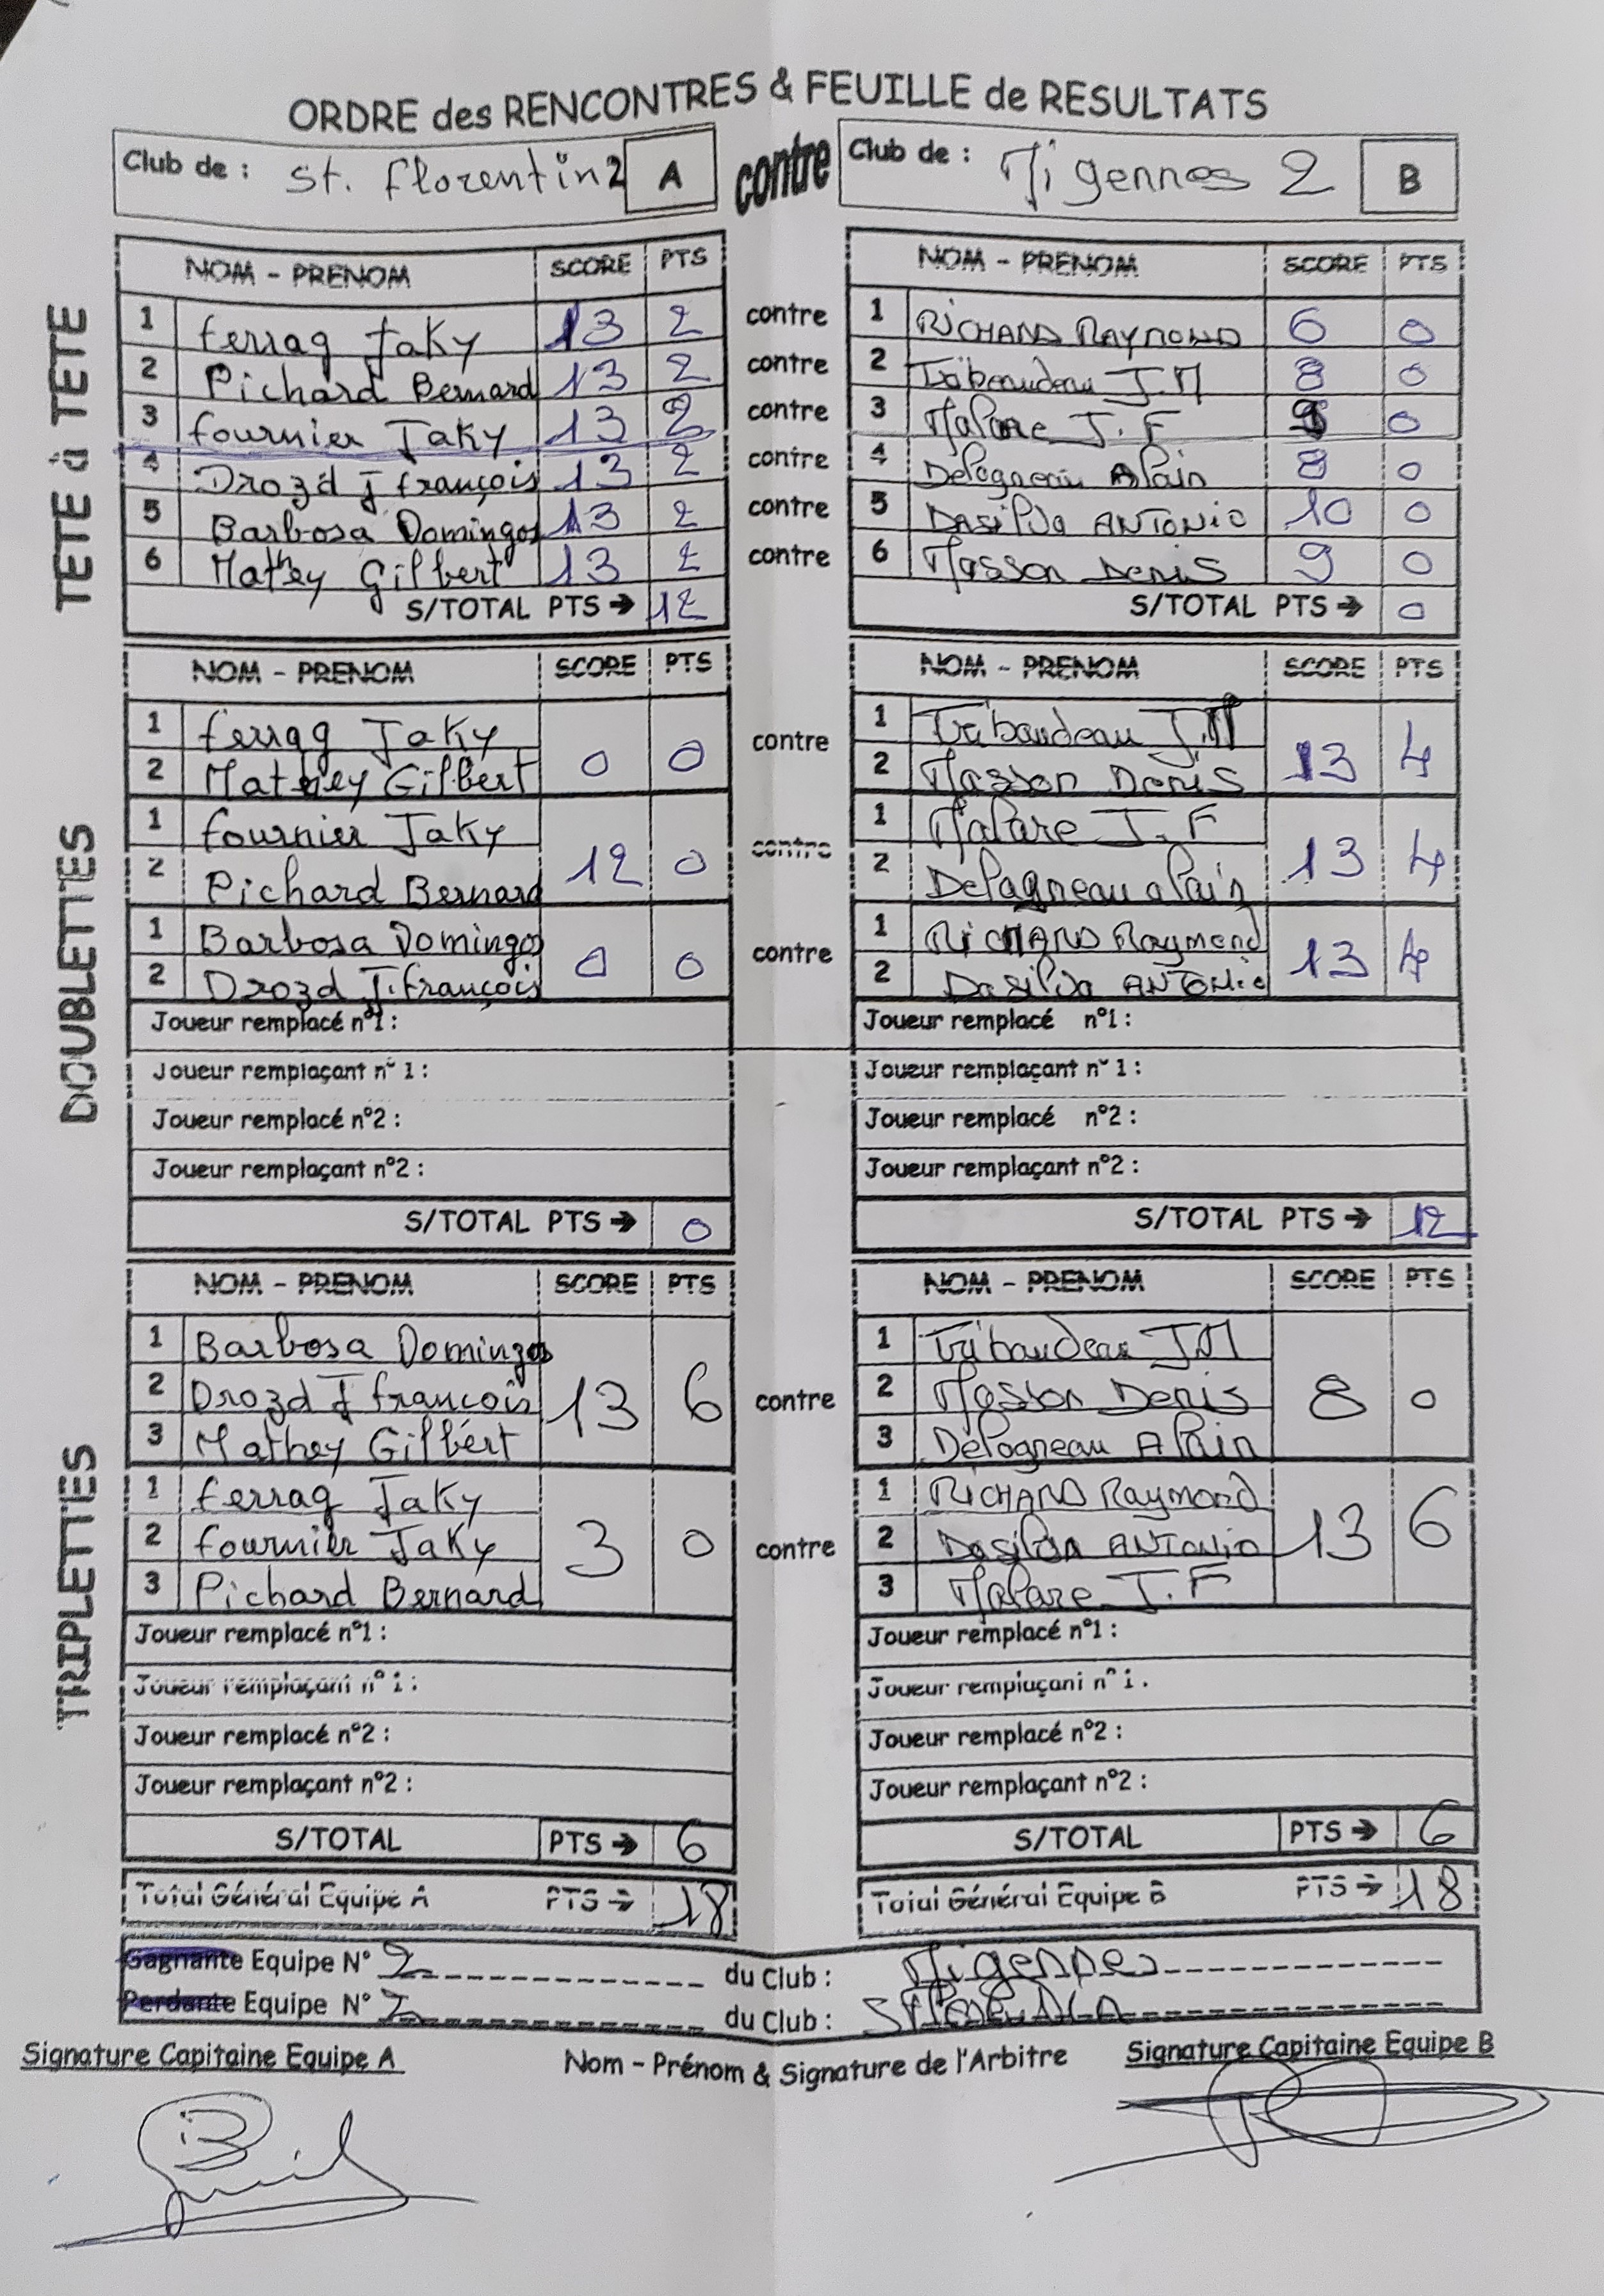 ORDRE des RENCONTRES & FEUILLE de RESULTATS
Club de : St. Florentin 2 A contre Club de : Migennes 2 B
TETE à TETE
NOM - PRENOM SCORE PTS NOM - PRENOM SCORE PTS
1 Ferrag Jaky 13 2 contre 1 RICHARD RAYMOND 6 0
2 Pichard Bernard 13 2 contre 2 Tribaudeau J.M 8 0
3 Fournier Jaky 13 2 contre 3 Malare J.F 0
4 Drozd J françois 13 2 contre 4 Delagneau Alain 8 0
5 Barbosa Domingos 13 2 contre 5 Dasilva ANTONIO 10 0
6 Mathey Gilbert 13 2 contre 6 Masson Denis 9 0
S/TOTAL PTS → 12 S/TOTAL PTS → 0
DOUBLETTES
NOM - PRENOM SCORE PTS NOM - PRENOM SCORE PTS
1 Ferrag Jaky 1 Tribaudeau J.M
0 0 contre 13 4
2 Mathey Gilbert 2 Masson Denis
1 Fournier Jaky 1 Malare J.F
12 0 contre 13 4
2 Pichard Bernard 2 Delagneau alain
1 Barbosa Domingos 1 RICHARD Raymond
0 0 contre 13 4
2 Drozd J.françois 2 Dasilva ANTONIO
Joueur remplacé n°1 : Joueur remplacé n°1 :
Joueur remplaçant n° 1 : Joueur remplaçant n° 1 :
Joueur remplacé n°2 : Joueur remplacé n°2 :
Joueur remplaçant n°2 : Joueur remplaçant n°2 :
S/TOTAL PTS → 0 S/TOTAL PTS → 12
TRIPLETTES
NOM - PRENOM SCORE PTS NOM - PRENOM SCORE PTS
1 Barbosa Domingos 1 Tribaudeau J.M
2 Drozd J françois 13 6 contre 2 Masson Denis 8 0
3 Mathey Gilbert 3 Delagneau Alain
1 Ferrag Jaky 1 RICHARD Raymond
2 Fournier Jaky 3 0 contre 2 Dasilva ANTONIO 13 6
3 Pichard Bernard 3 Malare J.F
Joueur remplacé n°1 : Joueur remplacé n°1 :
Joueur remplaçant n° 1 : Joueur remplaçant n° 1 :
Joueur remplacé n°2 : Joueur remplacé n°2 :
Joueur remplaçant n°2 : Joueur remplaçant n°2 :
S/TOTAL PTS → 6 S/TOTAL PTS → 6
Total Général Equipe A PTS → 18 Total Général Equipe B PTS → 18
Gagnante Equipe N° 2 du Club : Migennes
Perdante Equipe N° 2 du Club :
Signature Capitaine Equipe A Nom - Prénom & Signature de l'Arbitre Signature Capitaine Equipe B